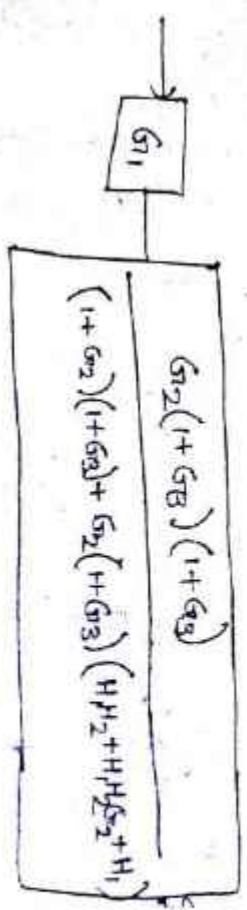 G1
G2(1+G3)(1+G3)
(1+G2)(1+G3)+G2(1+G3)(H1H2+H1H2G2+H1)